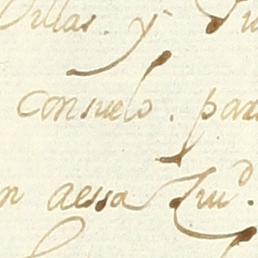 Villas. y
consuelo. para
en aessa Ciud.